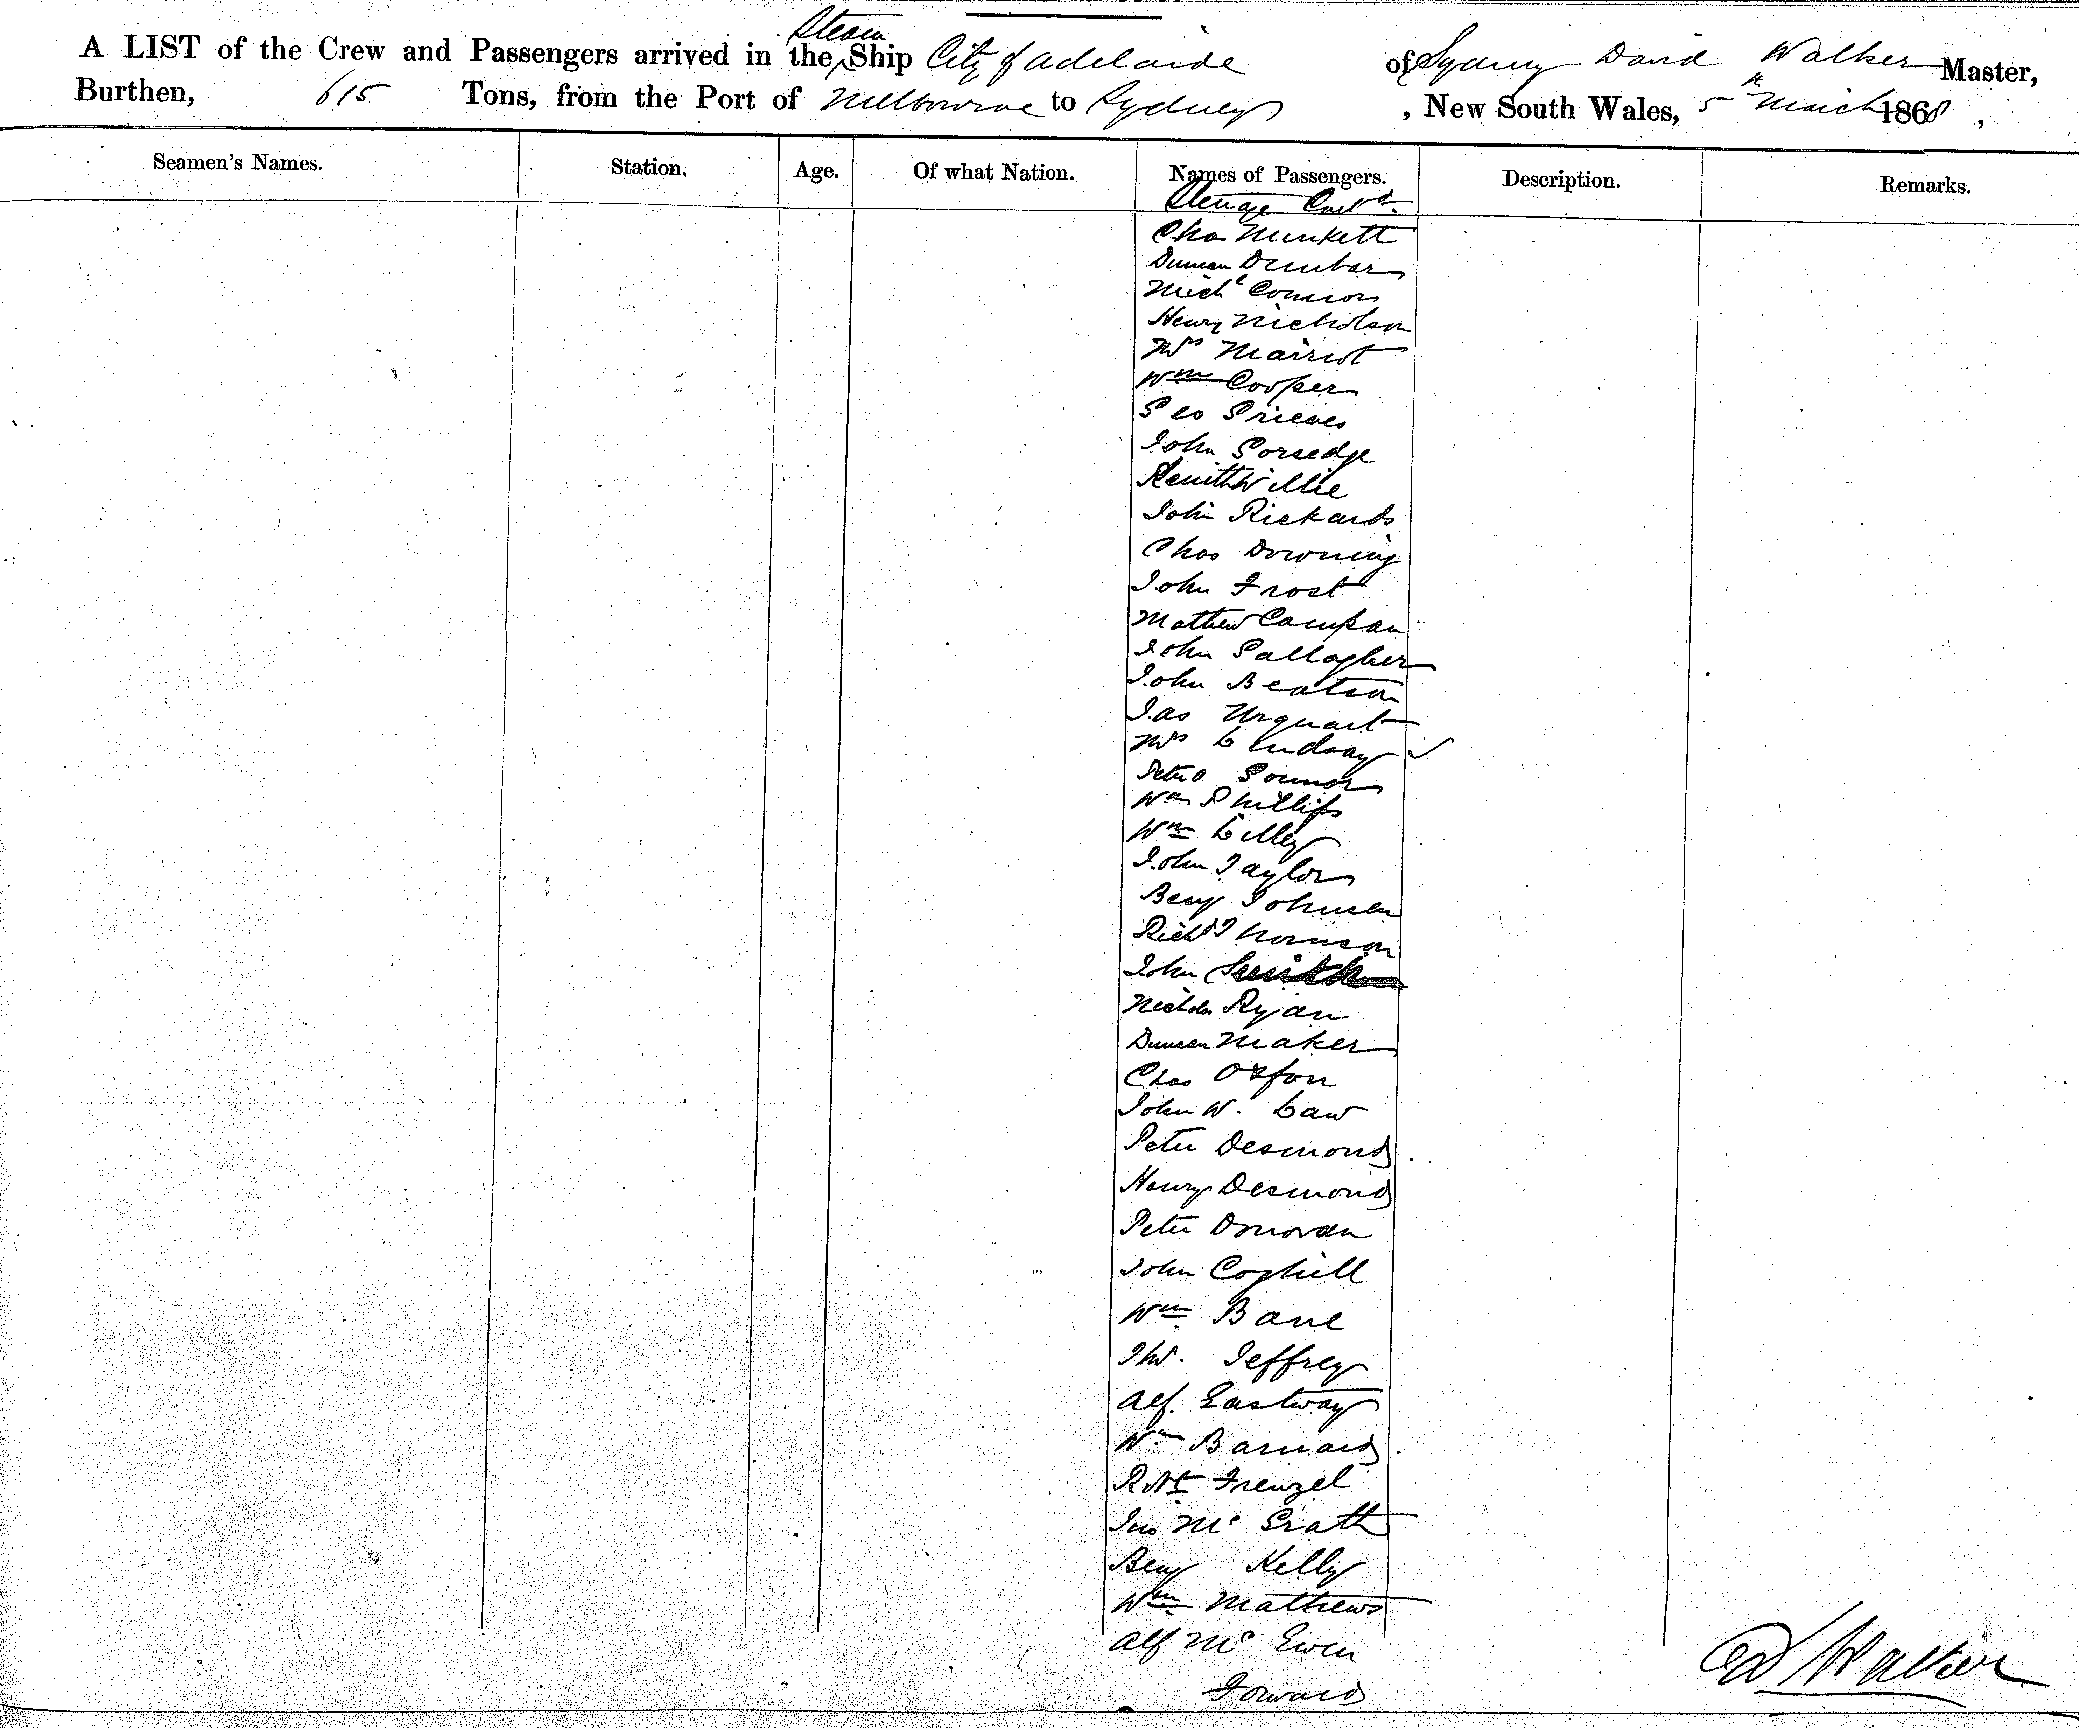 A LIST of the Crew and Passengers arrived in the Steam Ship City of Adelaide of Sydney David Walker Master,
Burthen, 615 Tons, from the Port of Melbourne to Sydney, New South Wales, 5th March 1868,
Seamen's Names. Station. Age. Of what Nation. Names of Passengers. Description. Remarks.
Steerage Contd.
Chas Munkett
Duncan Dunbar
Michl Connors
Henry Nicholson
Mrs Marriot
Wm Cooper
Geo Grieves
John Gorsedge
John Rickards
Chas Downing
John Frost
Mathew Campan
John Gallagher
John Beatson
Jas Urquart
Mrs Lindsay
Peter
Wm Phillips
Wm Lilley
John Taylor
Benj Johnson
Richd Thomson
John Smith
Nichols Ryan
Duncan Maker
Chas Oxfon
John W. Law
Peter Desmond
Henry Desmond
Peter Donovan
John Coghill
Wm Bane
Jeffrey
Alf. Eastway
Wm Barnard
Robt Frenzel
Jno McGrath
Benj Kelly
Wm Mathews
Alf McEwen
Forward
Walker